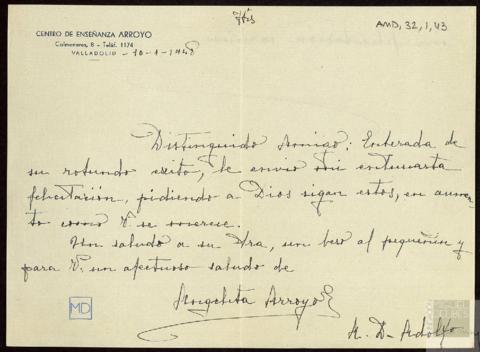 AMD, 32, 1, 43
CENTRO DE ENSEÑANZA ARROYO
Colmenares, 8 - Teléf. 1174
VALLADOLID - 10-1-1948
Distinguido Amigo: Enterada de
su rotundo exito, le envio mi entusiasta
felicitación, pidiendo a Dios sigan estos, en aumen-
to como V. se merece.
Un saludo a su Sra, un beso al pequeñin y
para V. un afectuoso saludo de
Angelita Arroyo
MD
A. D. Adolfo